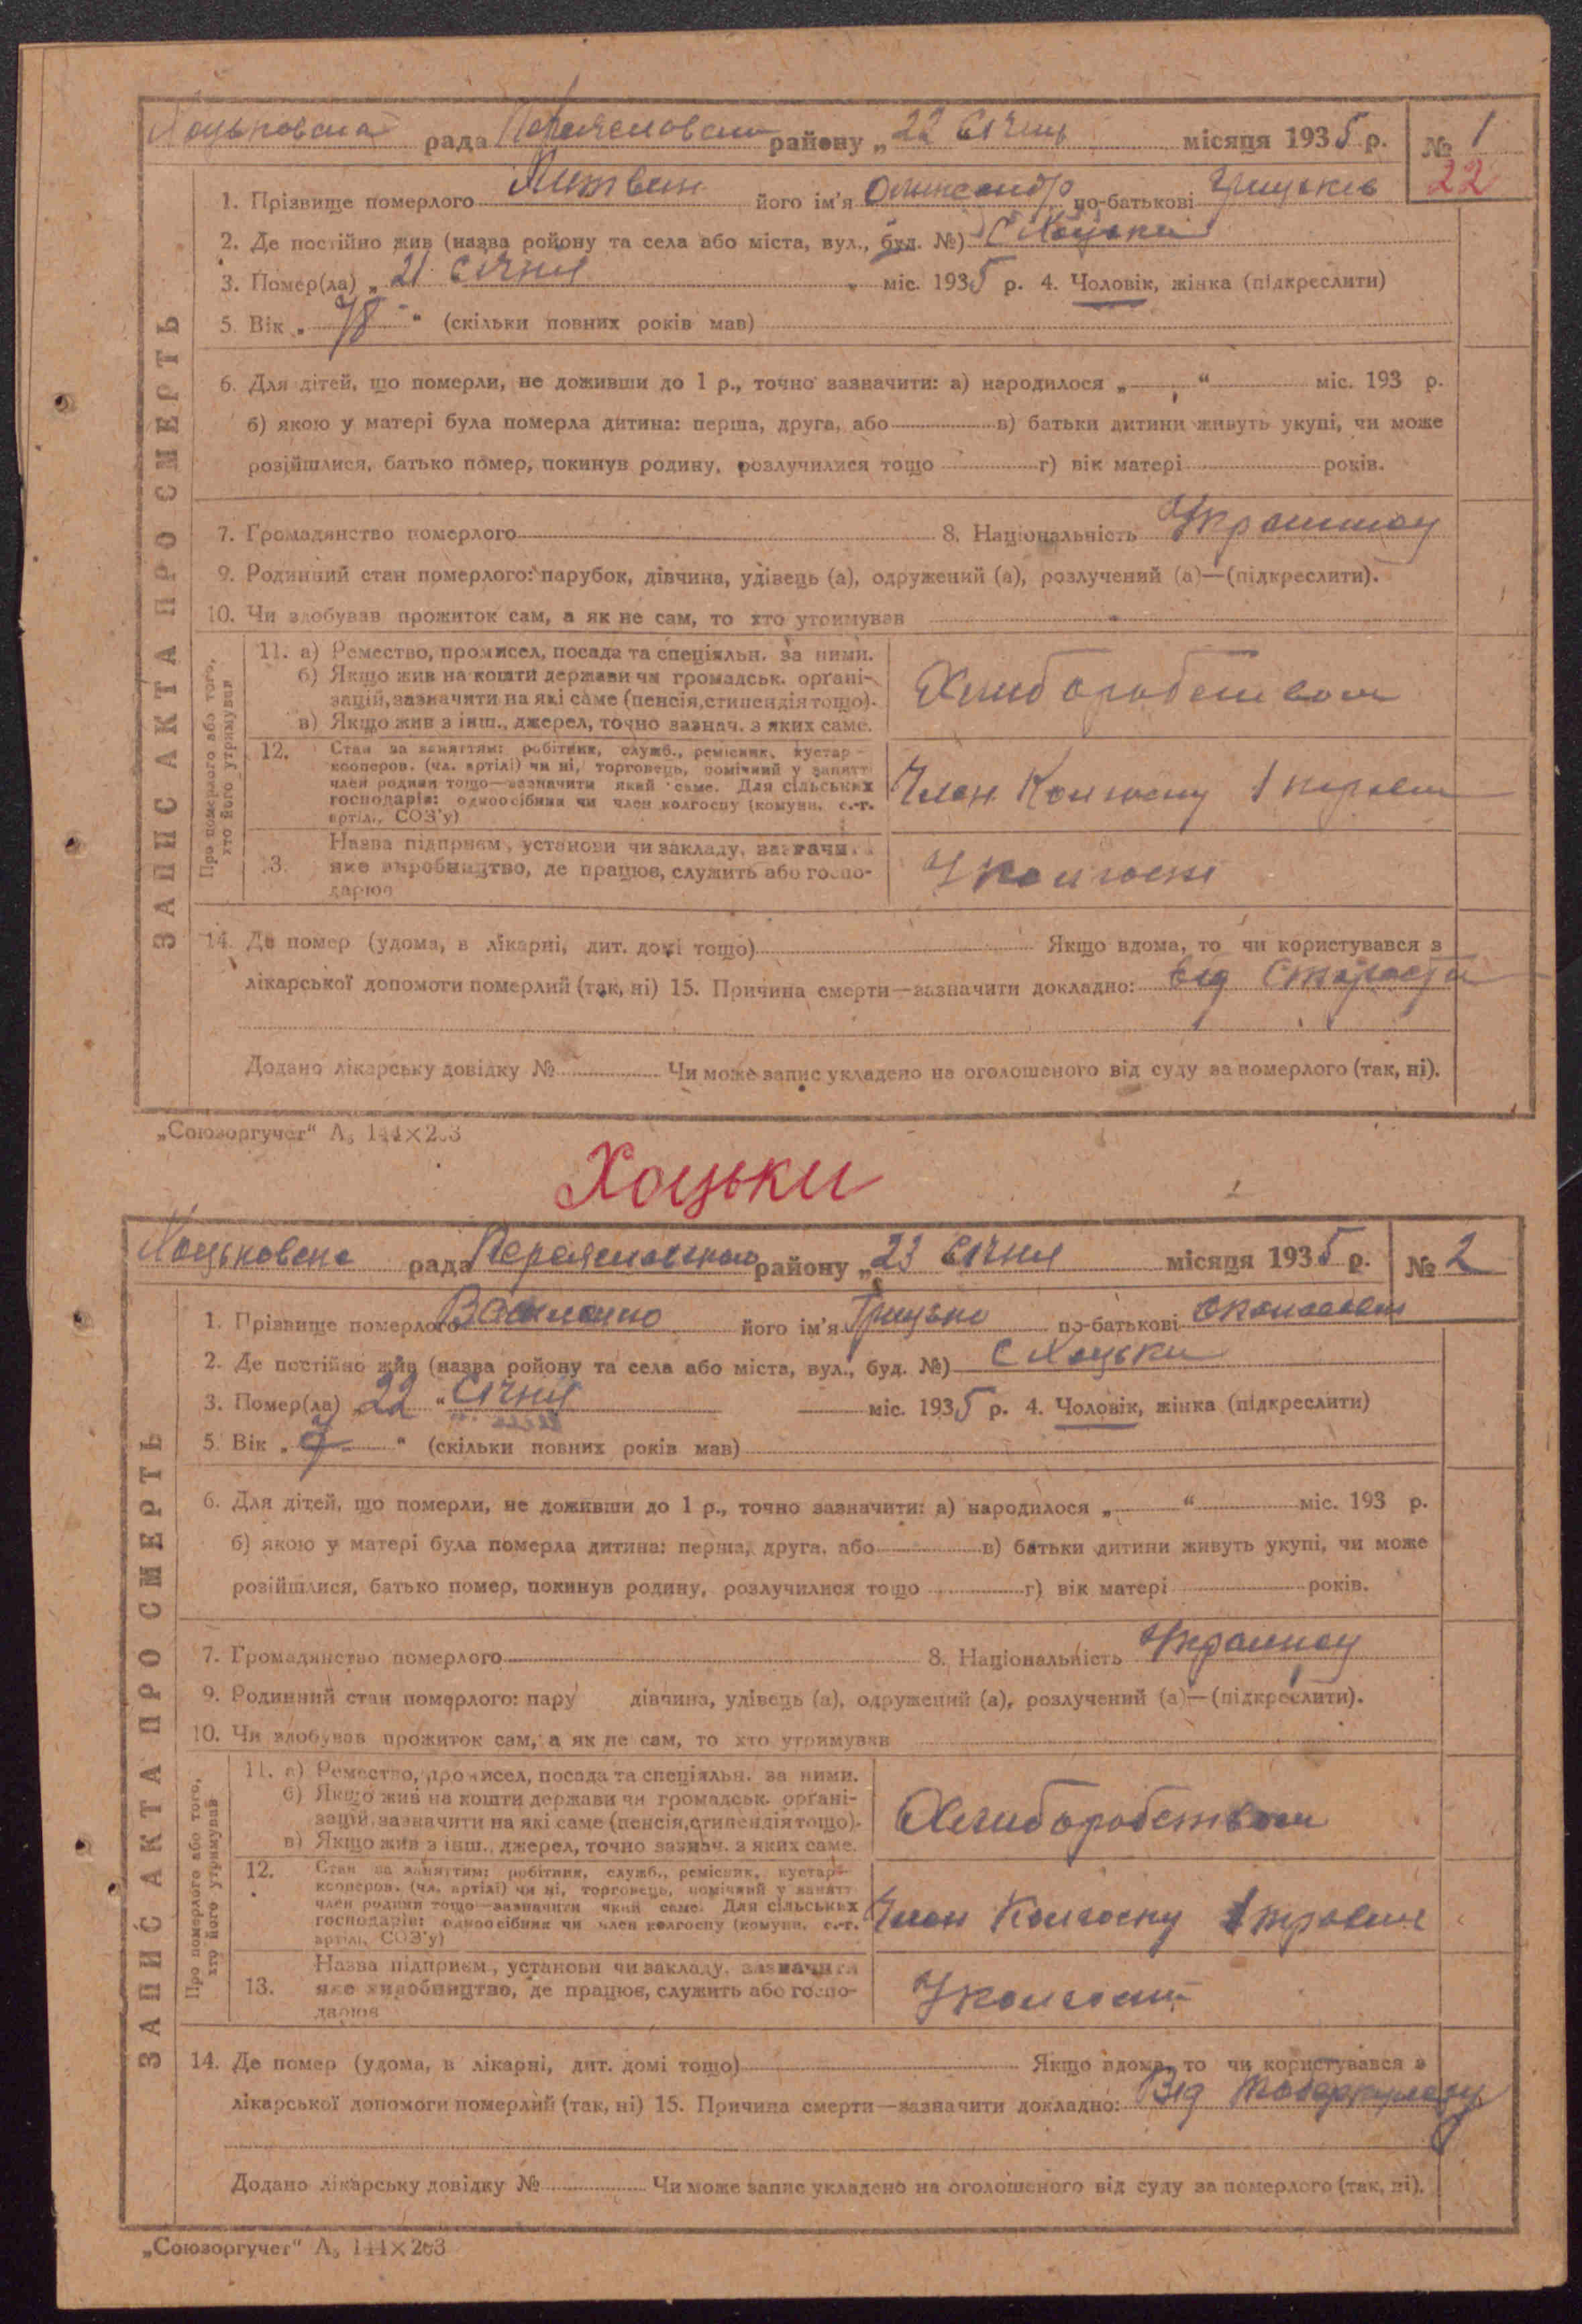 Хоцьковска рада Переяславськ району „ 22 Січня місяця 1935 р. № 1
22
1. Прізвище померлого Литвин його ім'я Олександр по-батькові Грицьків
2. Де постійно жив (назва ройону та села або міста, вул., буд. №) С Хоцьки
3. Помер(ла) „ 21 Січня „ міс. 1935 р. 4. Чоловік, жінка (підкреслити)
5. Вік „ 78 “ (скільки повних років мав)
6. Для дітей, що померли, не доживши до 1 р., точно зазначити: а) народилося „ “ міс. 193 р.
б) якою у матері була померла дитина: перша, друга, або в) батьки дитини живуть укупі, чи може
розійшлися, батько помер, покинув родину, розлучилися тощо г) вік матері років.
7. Громадянство померлого 8. Національність
9. Родинний стан померлого: парубок, дівчина, удівець (а), одружений (а), розлучений (а)—(підкреслити).
10. Чи здобував прожиток сам, а як не сам, то хто утримував
Про померлого або того,
хто його утримував
11. а) Ремество, промисел, посада та спеціяльн. за ними.
б) Якщо жив на кошти держави чи громадськ. органі-
зацій, зазначити на які саме (пенсія, стипендія тощо).
в) Якщо жив з інш., джерел, точно зазнач. з яких саме.
Хлиборобством
12. Стан за заняттям: робітник, служб., ремісник, кустар-
кооперов. (чл. артілі) чи ні, торговець, помічний у занятт
член родини тощо—зазначити який саме. Для сільських
господарів: одноосібник чи член колгоспу (комуни, с.-г.
артіл., СОЗ'у)
Член Колгоспу 1 травня
13. Назва підприєм., установи чи закладу, зазначити
яке виробництво, де працює, служить або госпо-
дарює
У колгоспі
14. Де помер (удома, в лікарні, дит. домі тощо) Якщо вдома, то чи користувався з
лікарської допомоги померлий (так, ні) 15. Причина смерти—зазначити докладно: Від Старости
Додано лікарську довідку № Чи може запис укладено на оголошеного від суду за померлого (так, ні).
ЗАПИС АКТА ПРО СМЕРТЬ
„Союзоргучет“ А₅ 144×203
Хоцьки
Хоцьковска рада Переяславського району „ 23 Січня місяця 1935 р. № 2
1. Прізвище померлого його ім'я Грицько по-батькові
2. Де постійно жив (назва ройону та села або міста, вул., буд. №) С Хоцьки
3. Помер(ла) „ 22 “ Січня міс. 1935 р. 4. Чоловік, жінка (підкреслити)
5. Вік „ 7 “ (скільки повних років мав)
6. Для дітей, що померли, не доживши до 1 р., точно зазначити: а) народилося „ “ міс. 193 р.
б) якою у матері була померла дитина: перша, друга, або в) батьки дитини живуть укупі, чи може
розійшлися, батько помер, покинув родину, розлучилися тощо г) вік матері років.
7. Громадянство померлого 8. Національність
9. Родинний стан померлого: пару дівчина, удівець (а), одружений (а), розлучений (а)—(підкреслити).
10. Чи здобував прожиток сам, а як не сам, то хто утримував
Про померлого або того,
хто його утримував
11. а) Ремество, промисел, посада та спеціяльн. за ними.
б) Якщо жив на кошти держави чи громадськ. органі-
зацій, зазначити на які саме (пенсія, стипендія тощо).
в) Якщо жив з інш., джерел, точно зазнач. з яких саме.
Хлиборобством
12. Стан за заняттям: робітник, служб., ремісник, кустар-
кооперов. (чл. артілі) чи ні, торговець, помічний у занятт
член родини тощо—зазначити який саме. Для сільських
господарів: одноосібник чи член колгоспу (комуни, с.-г.
артіл., СОЗ'у)
Член Колгоспу 1 травня
13. Назва підприєм., установи чи закладу, зазначити
яке виробництво, де працює, служить або госпо-
дарює
У колгоспі
14. Де помер (удома, в лікарні, дит. домі тощо) Якщо вдома, то чи користувався з
лікарської допомоги померлий (так, ні) 15. Причина смерти—зазначити докладно: Від
Додано лікарську довідку № Чи може запис укладено на оголошеного від суду за померлого (так, ні).
ЗАПИС АКТА ПРО СМЕРТЬ
„Союзоргучет“ А₅ 144×203